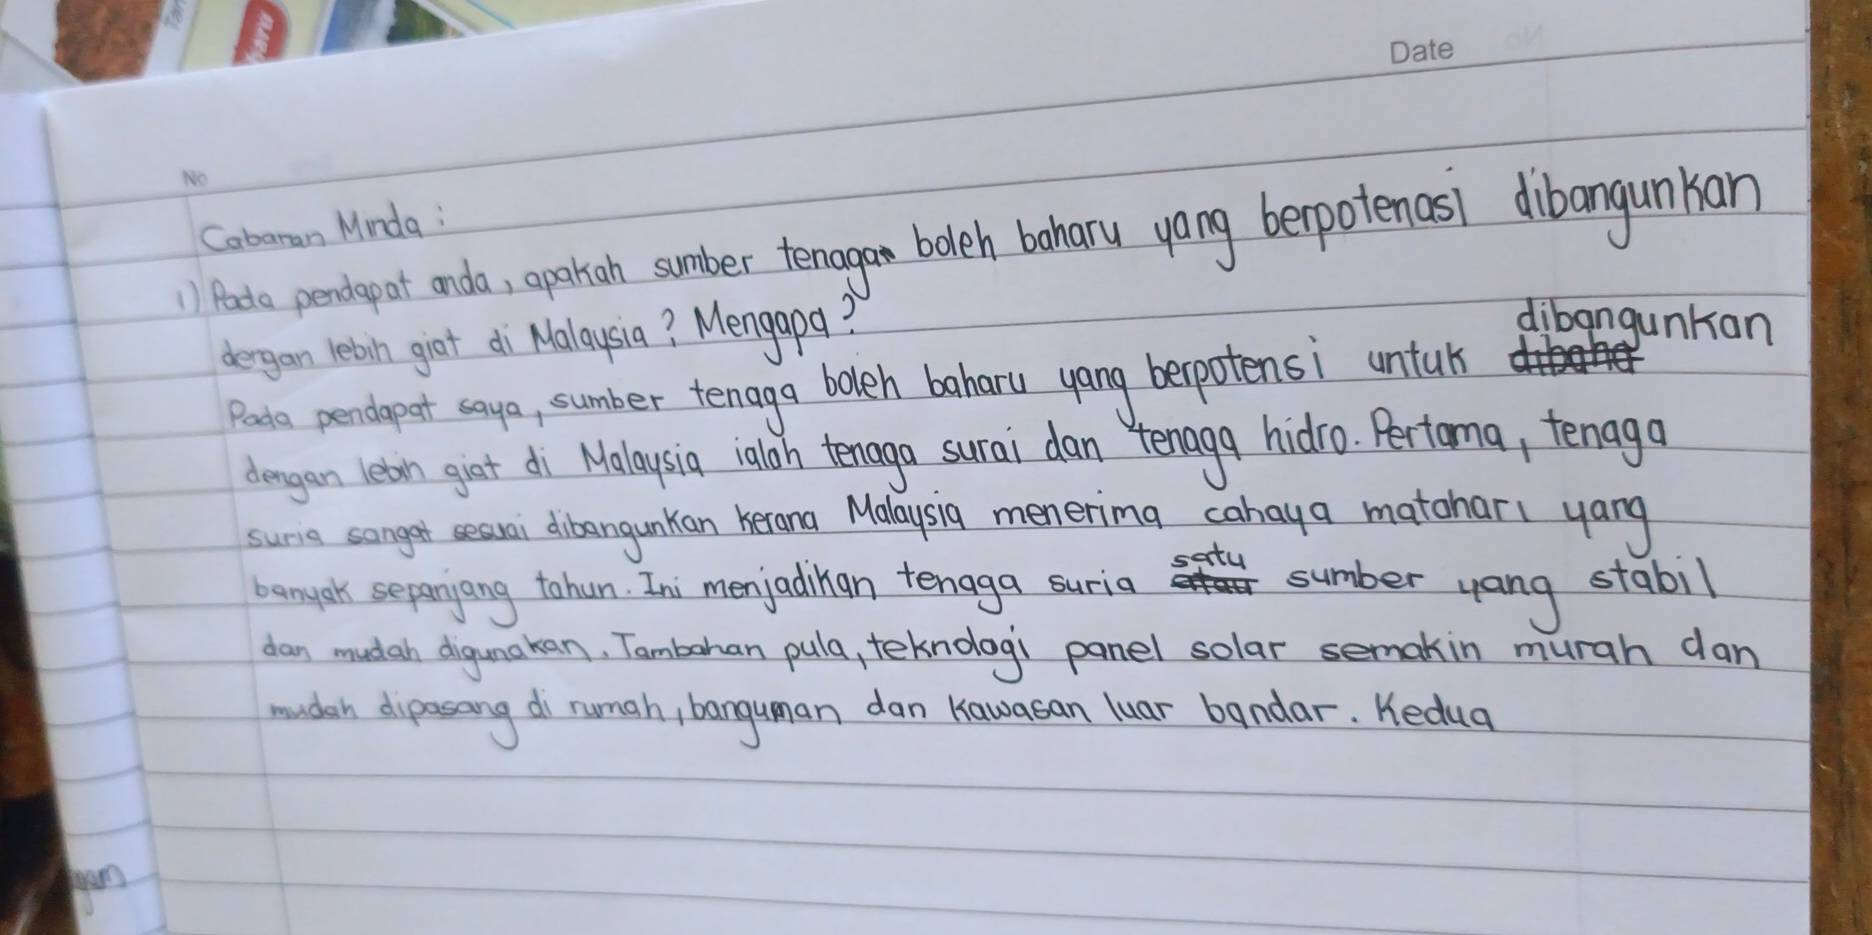 Tan
baru
Date
No
Cabaran Minda:
1) Pada pendapat anda, apakah sumber tenaga boleh baharu yang berpotenasi dibangunkan
dengan lebih giat di Malaysia? Mengapa?
Pada pendapat saya, sumber tenaga boleh baharu yang berpotensi untuk dibangunkan
dengan lebih giat di Malaysia ialah tenaga surai dan tenaga hidro. Pertama, tenaga
suria sangat sesuai dibangunkan kerana Malaysia menerima cahaya matahari yang
banyak sepanjang tahun. Ini menjadikan tenaga suria satu sumber yang stabil
dan mudah digunakan. Tambahan pula, teknologi panel solar semakin murah dan
mudah dipasang di rumah, bangunan dan kawasan luar bandar. Kedua
gam